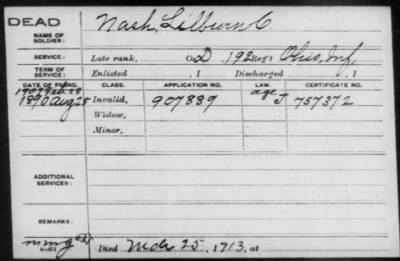 DEAD
NAME OF SOLDIER: Nash, Lilburn C.
SERVICE: Late rank, Co. D, 192 Reg't Ohio Inf.
TERM OF SERVICE: Enlisted , 1 Discharged , 1
DATE OF FILING. CLASS. APPLICATION NO. LAW. CERTIFICATE NO.
age
1890 Aug 25 Invalid, 907889 J 757372
Widow,
Minor,
ADDITIONAL SERVICES:
REMARKS:
Died Mar 25, 1913, at